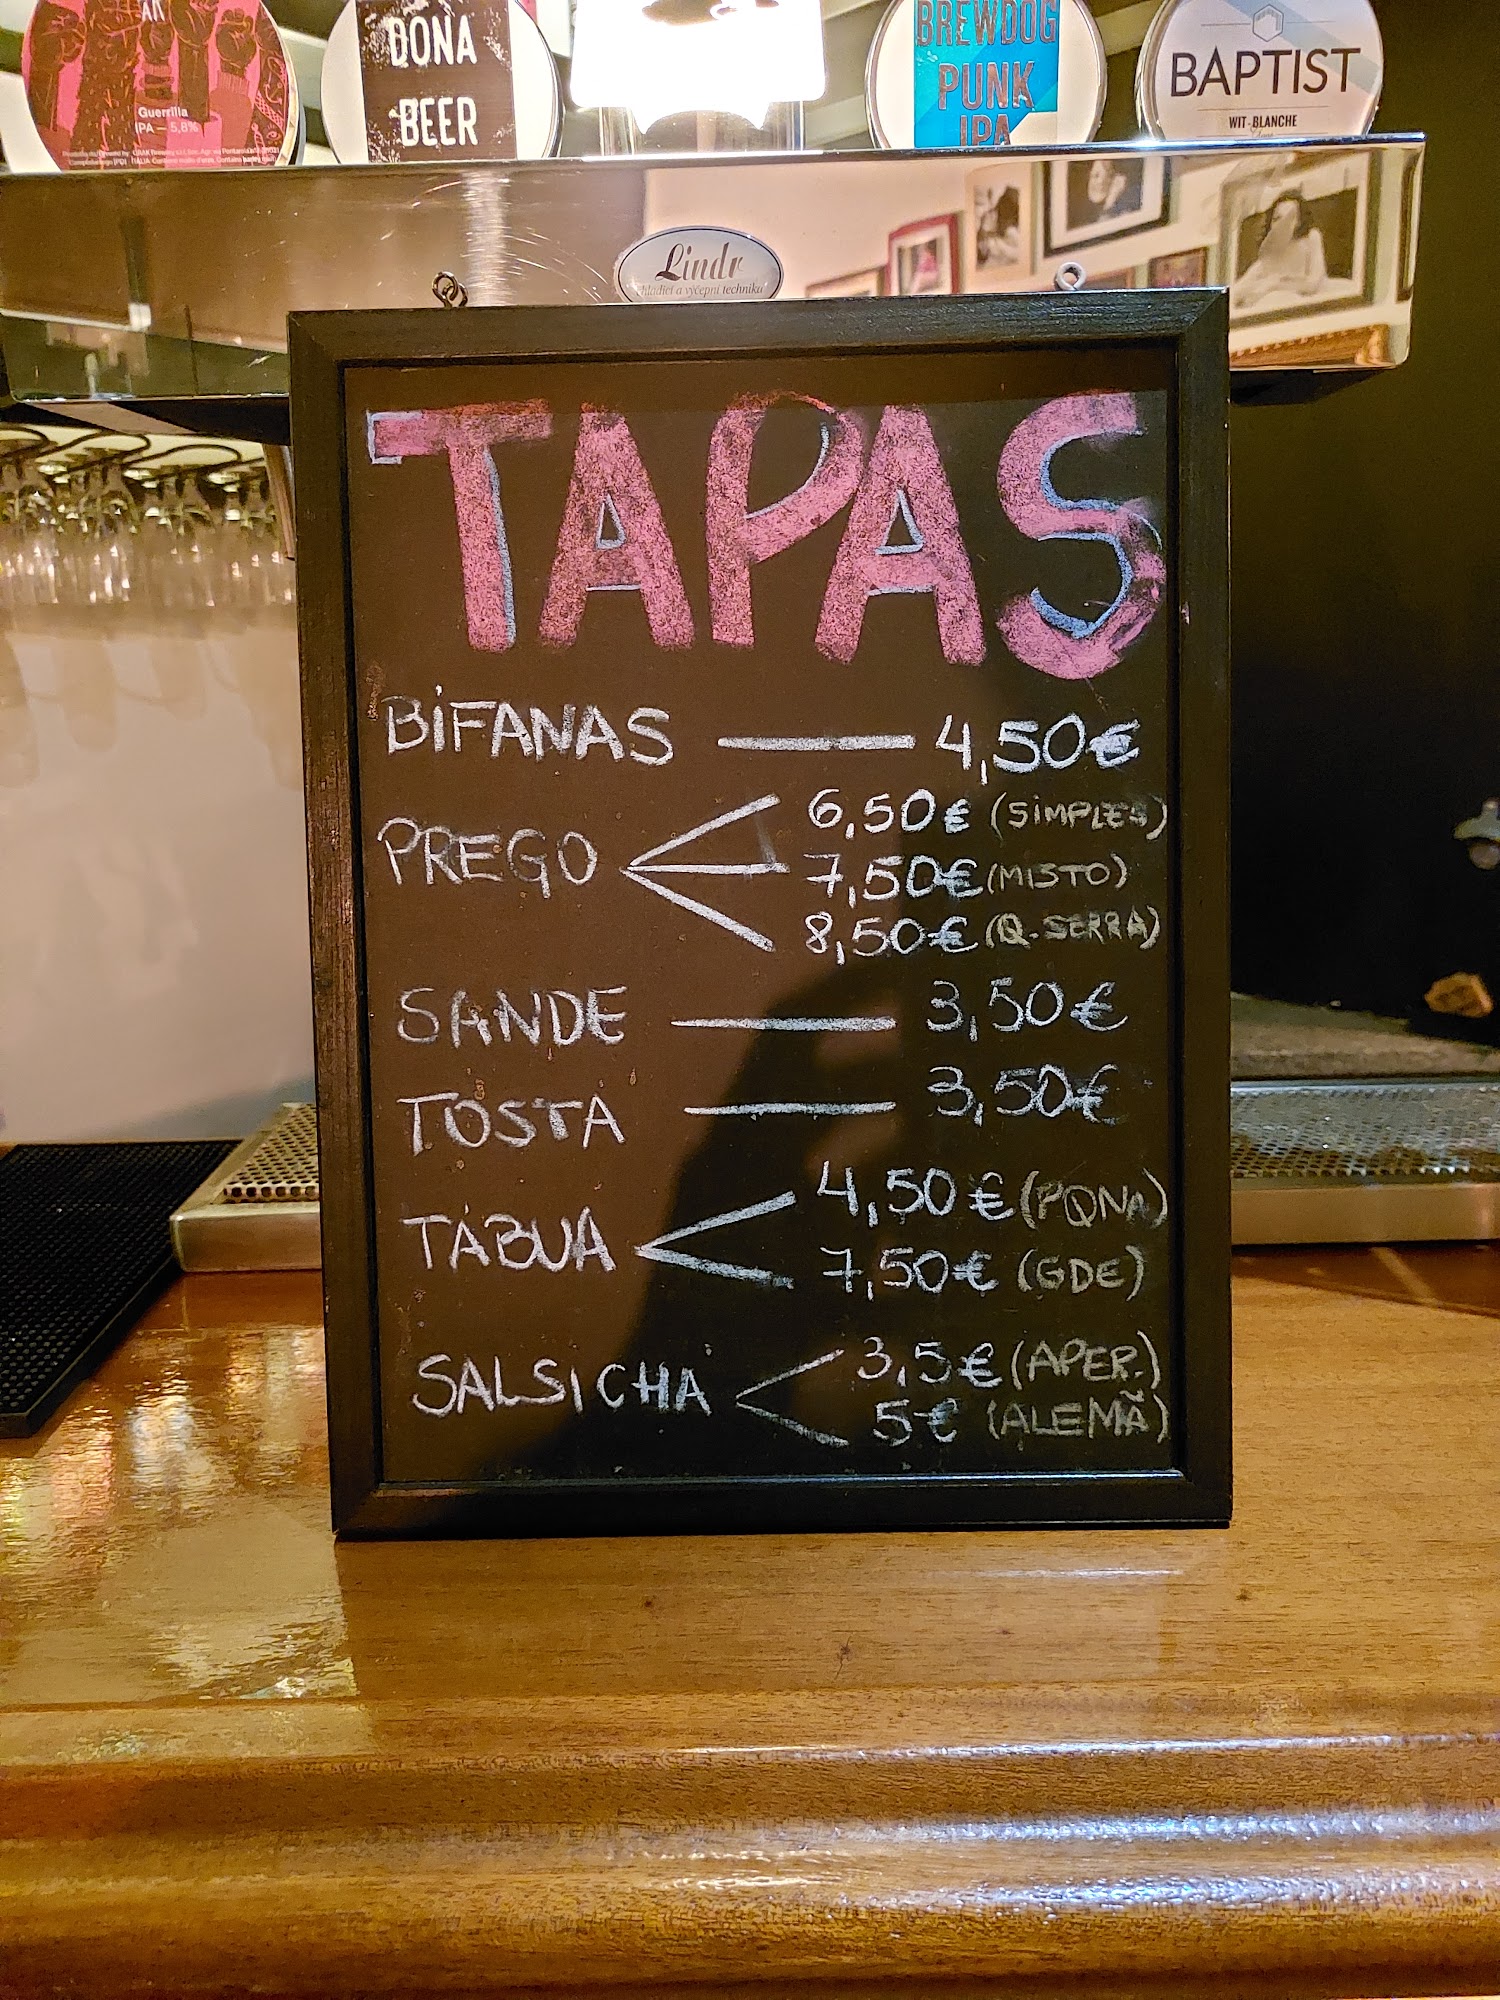 AK
Guerrilla
IPA — 5,8%
DONA
BEER
BREWDOG
PUNK
IPA
BAPTIST
WIT-BLANCHE
Lindr
chladící a výčepní technika
TAPAS
BIFANAS — 4,50€
PREGO 6,50€ (SIMPLES)
7,50€ (MISTO)
8,50€ (Q. SERRA)
SANDE — 3,50€
TOSTA — 3,50€
TÁBUA 4,50€ (PQNA)
7,50€ (GDE)
SALSICHA 3,5€ (APER.)
5€ (ALEMÃ)